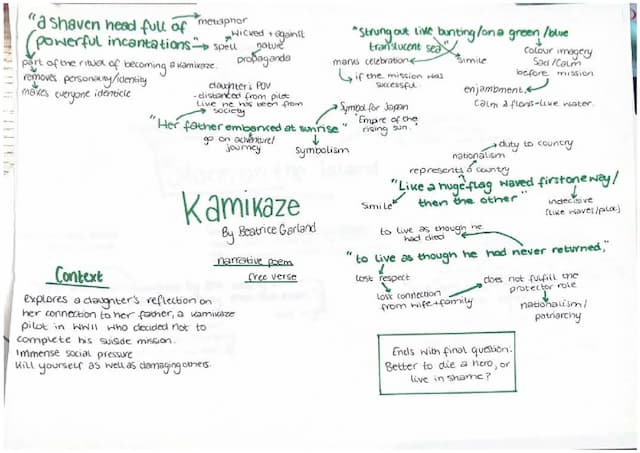 "a shaven head full of
powerful incantations"
metaphor
spell
wicked + against
nature
propaganda
part of the ritual of becoming a kamikaze.
removes personality/identity
makes everyone identicle
daughter's POV
- distanced from pilot
like he has been from
society
"Her father embarked at sunrise"
go on adventure/
journey
symbolism
Symbol for Japan
"Empire of the
rising sun."
"Strung out like bunting/on a green/blue
translucent sea"
marks celebration
if the mission was
successful.
simile
Colour imagery
Sad/Calm
before mission
enjambment
Calm afloat-like water.
duty to country
nationalism
represents a country
"Like a huge flag waved first one way/
then the other"
Simile
indecisive
(like waves/pilot)
Kamikaze
By Beatrice Garland
narrative poem
free verse
to live as though he
had died
"to live as though he had never returned,"
lost respect
lost connection
from wife+family
does not fulfill the
protector role
nationalism/
patriarchy
Context
explores a daughter's reflection on
her connection to her father, a kamikaze
pilot in WWII who decided not to
complete his suicide mission.
Immense social pressure
Kill yourself as well as damaging others.
Ends with final question.
Better to die a hero, or
live in shame?